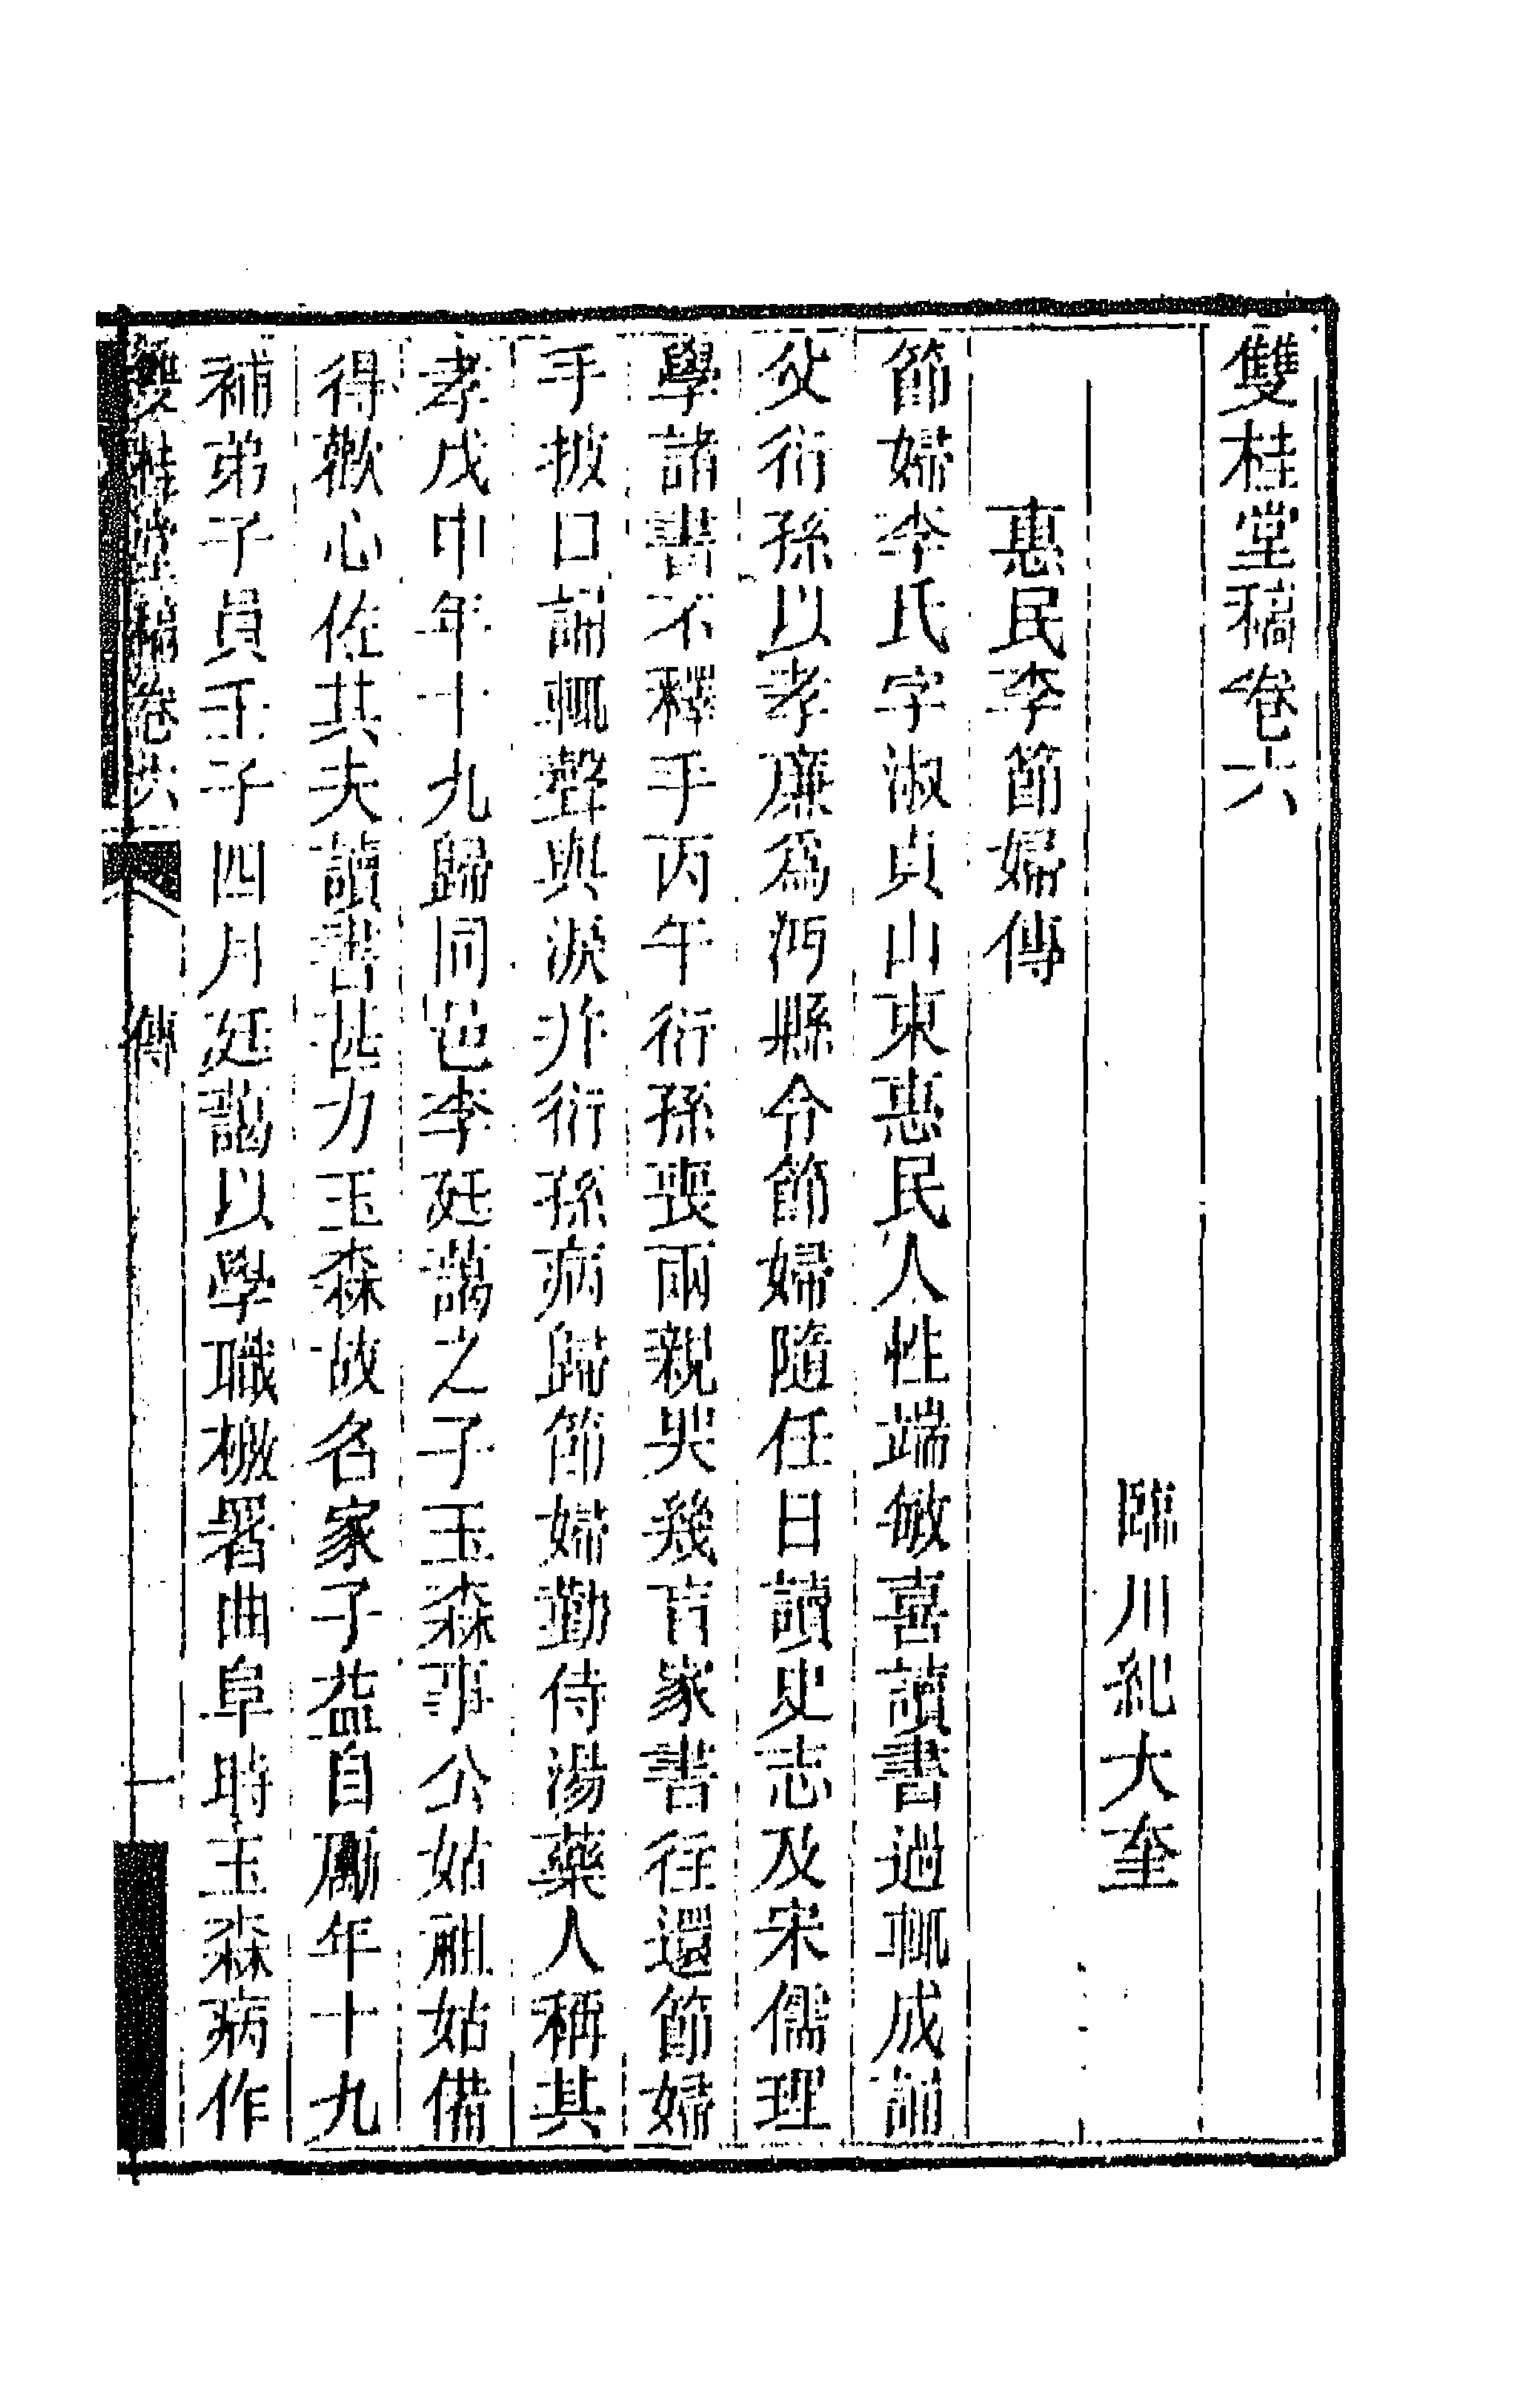 雙桂堂稿卷六
臨川紀大奎
惠民李節婦傳
節婦李氏字淑貞山東惠民人性端敏喜讀書過輒成誦
父衍孫以孝廉爲沔縣令節婦隨任日讀史志及宋儒理
學諸書不釋手丙午衍孫喪兩親哭幾盲家書往還節婦
手披口誦輒聲與淚并衍孫病歸節婦勤侍湯藥人稱其
孝戊申年十九歸同邑李廷藹之子玉森事公姑祖姑備
得歡心佐其夫讀書甚力玉森故名家子益自勵年十九
補弟子員壬子四月廷藹以學職檄署曲阜時玉森病作
雙桂堂稿卷六 傳 一